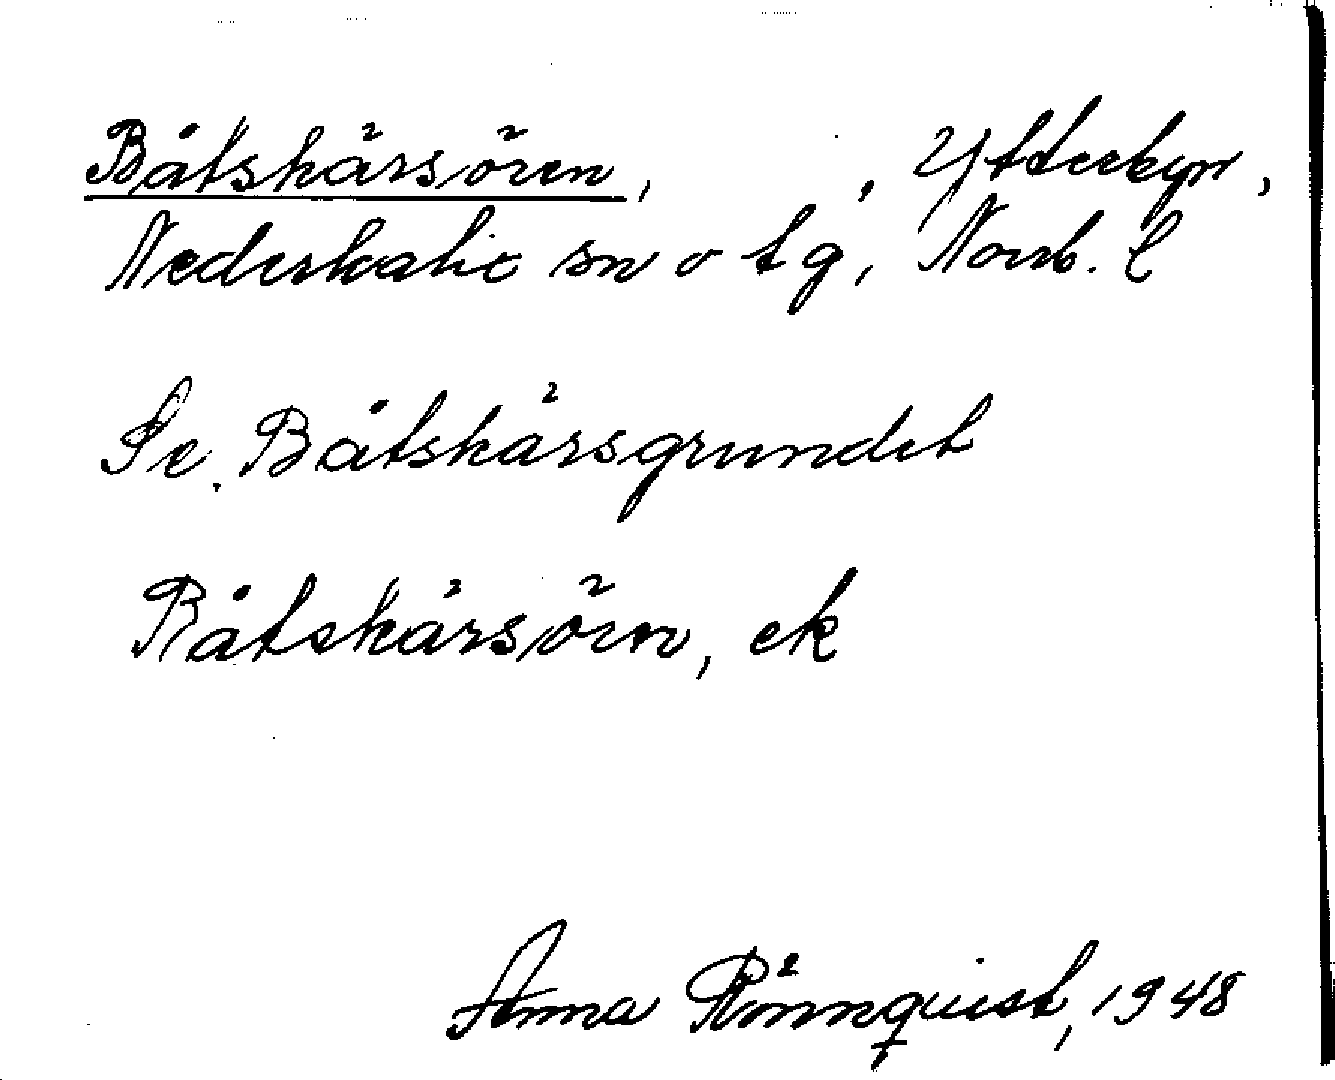 Båtskärsören, , Ytterbyn,
Nederkalix sn o tg, Norrb. l
Se. Båtskärsgrundet
Båtskärsören, ek
Anna Rönnquist, 1948